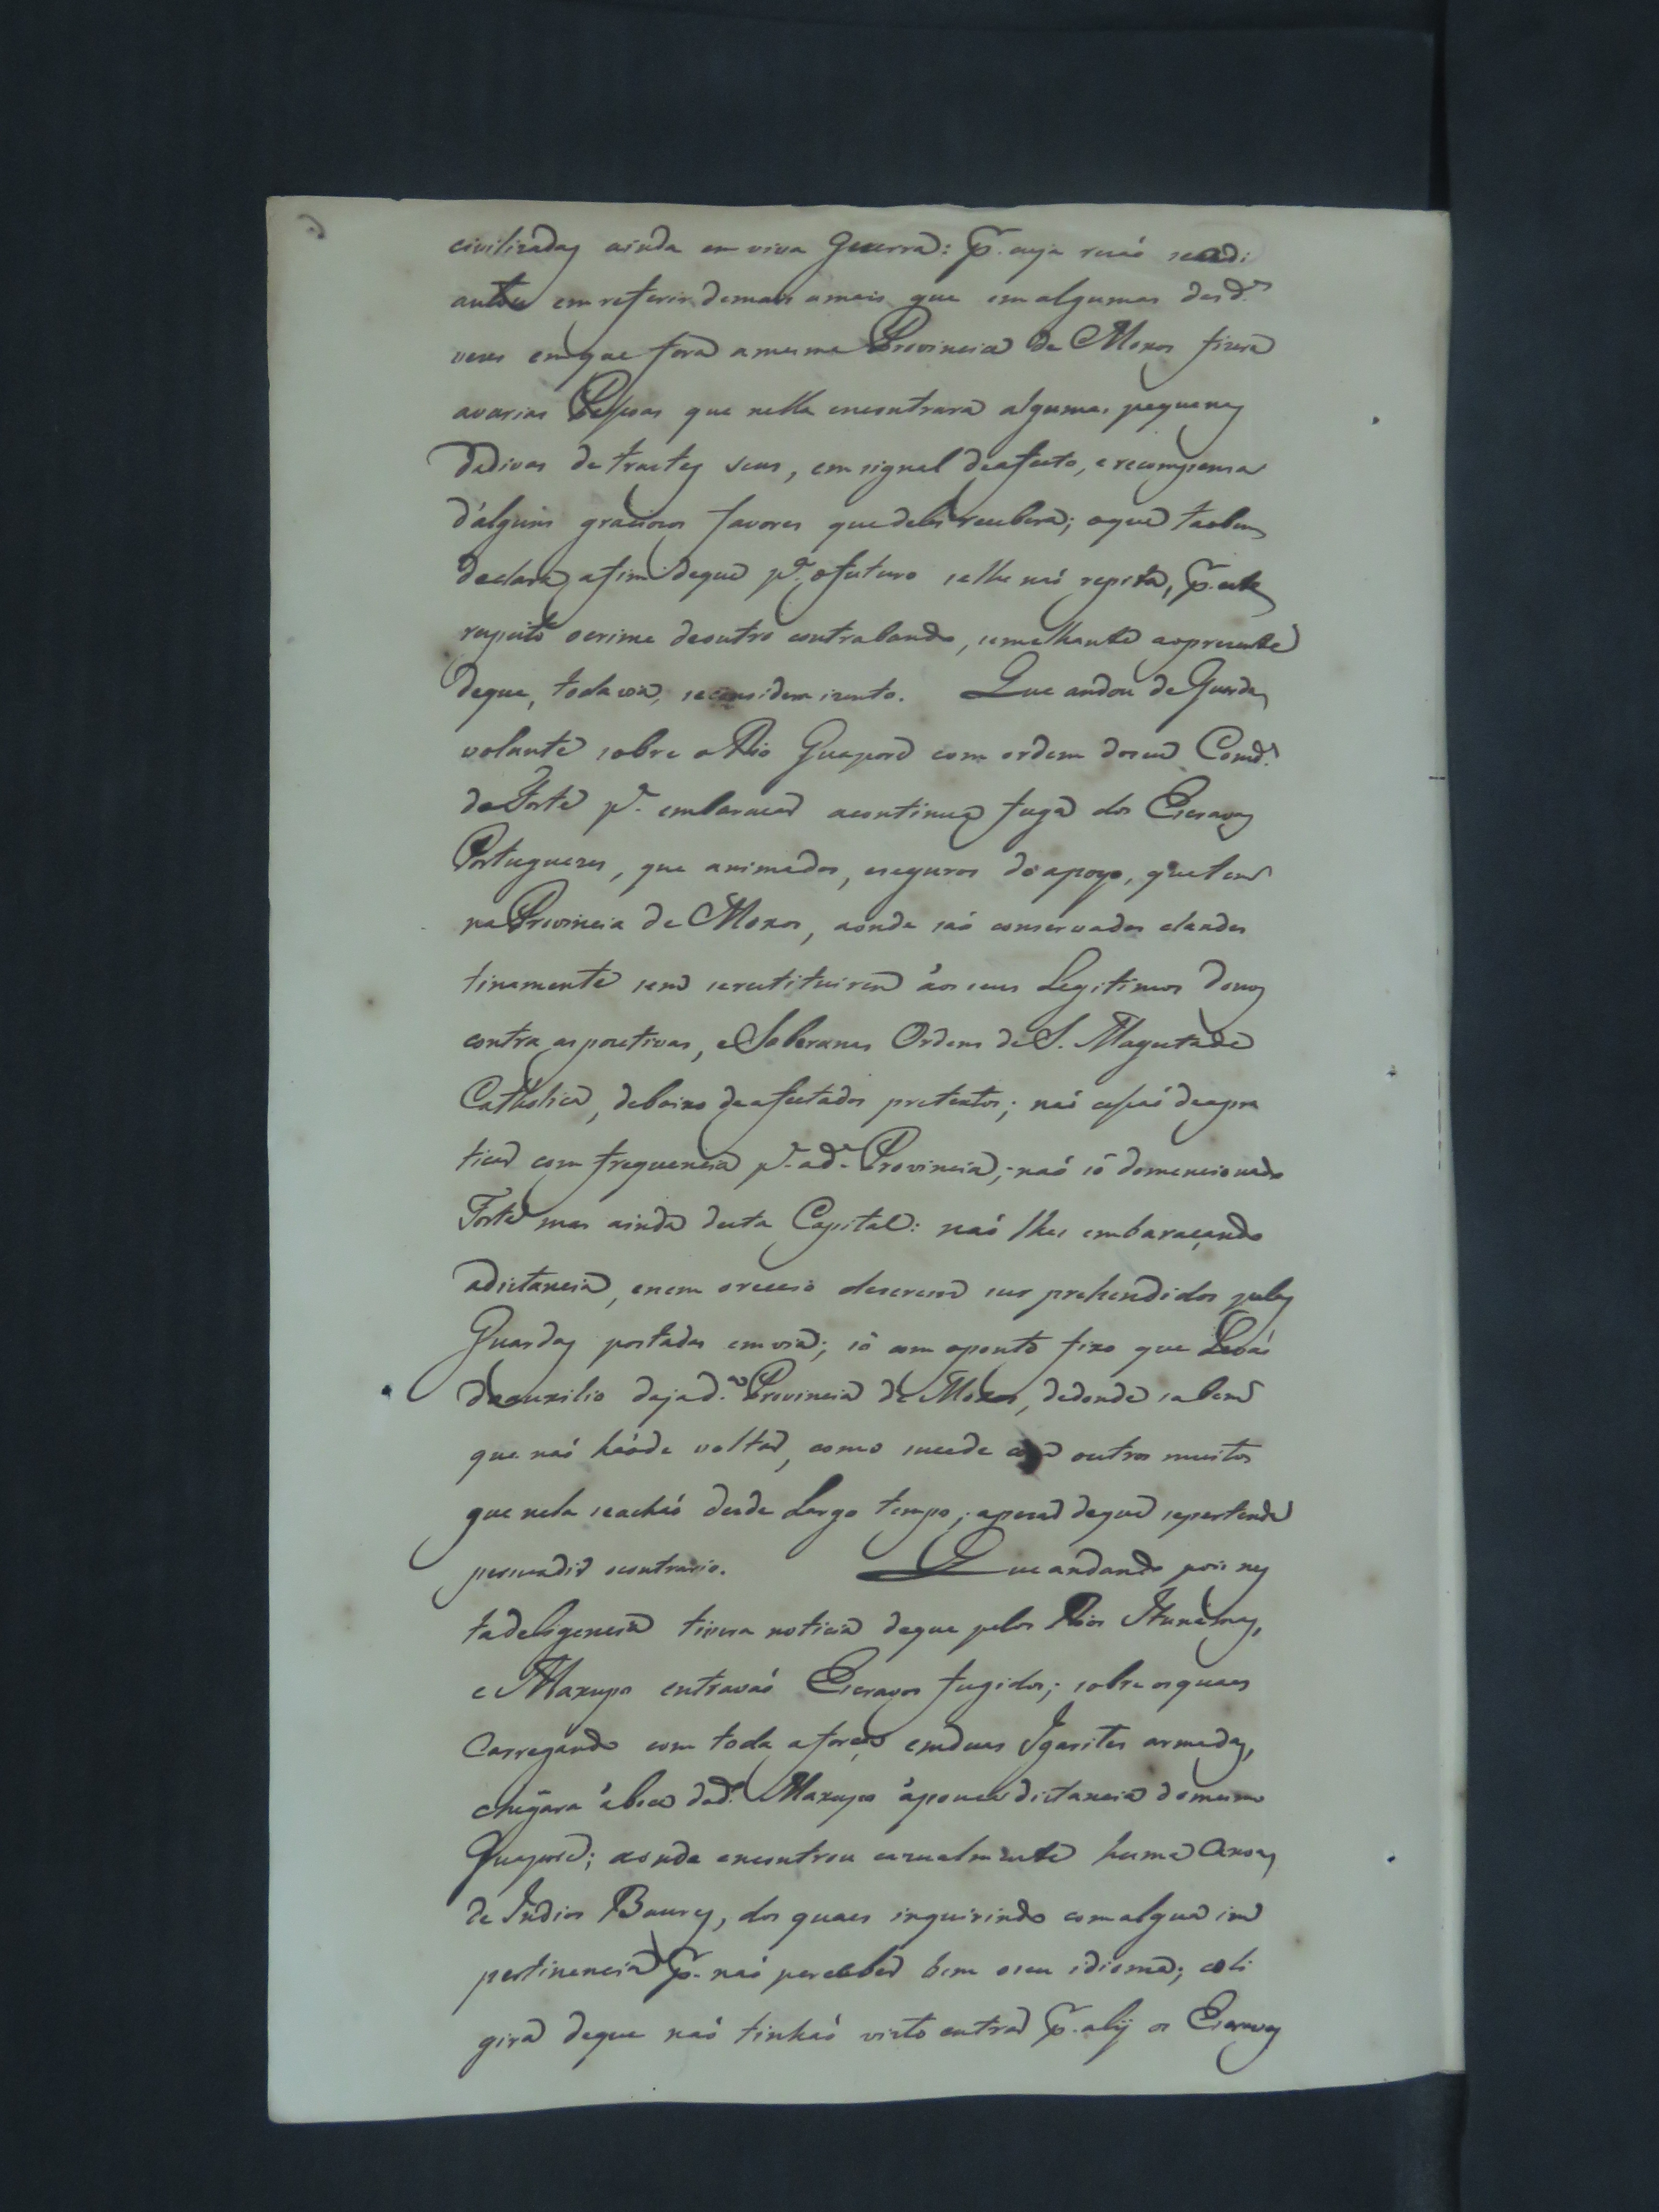 civilizadas ainda em viva Guerra: P. cuja razaõ se adi
antou em referir demais amais que em algumas das d.as
vezes em que fora amesma Provincia de Moxos fizera
avarias Pessoas que nella encontrara algumas pequenas
dadivas de trastes seus, em signal deafecto, erecompensa
d'alguns graciosos favores quedeles recebera; oque taobem
declara afim deque p.a ofuturo selhe naõ repita, P. este
respeito ocrime deoutro contrabando, semelhante aopresente
deque, todavia, seconsidera izento. Que andou de Guarda
volante sobre o Rio Guaporé com ordem doseu Comd.e
do Forte p.a embaraçar acontinua fuga dos Escravos
Portuguezes, que animados, eseguros do apoyo, que tem
na Provincia de Moxos, aonde saõ conservados clandes
tinamente sem serestituirem áos seus Legitimos donos
contra aspozetivas, e Soberanas Ordens de S. Magestade
Catholica, debaixo deafectados pretextos; naõ cessaõ deapra
ticar com frequencia p.a ad.a Provincia, naõ só domencionado
Forte mas ainda desta Capital: naõ lhes embaraçando
adistancia, enem oreceio deserem surprehendidos pelas
Guardas postadas em via; só com oponto fixo que Levaõ
doauxilio daja d.a Provincia de Moxos, dedonde sabem
que naõ háode voltar, como sucede com outros muitos
que nela seachaõ desde Largo tempo; apezar deque sepertende
persuadir ocontrario. Que andando pois nes
tadeligencia tivera noticia deque pelos Rios Itunamas,
e Maxupo entravaõ Escravos fugidos; sobre osquaes
Carregando com toda aforça emduas Igarités armadas,
chegara áboca dod.o Maxupo ápouca distancia domesmo
Guaporé; aonde encontrou cazualmente huma Canoa
de Indios Baures, dos quaes inquirindo comalgua im
pertinencia P. naõ perceber bem oseu idioma; coli
gira deque naõ tinhaõ visto entrar P. aly os Escravos